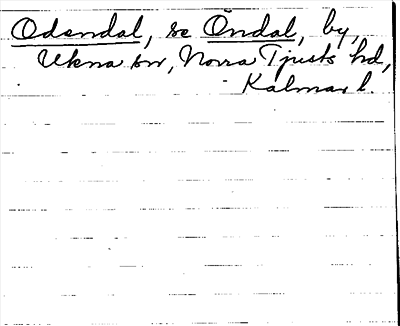 Odendal, se Öndal, by,
Ukna sn, Norra Tjusts hd,
Kalmar l.